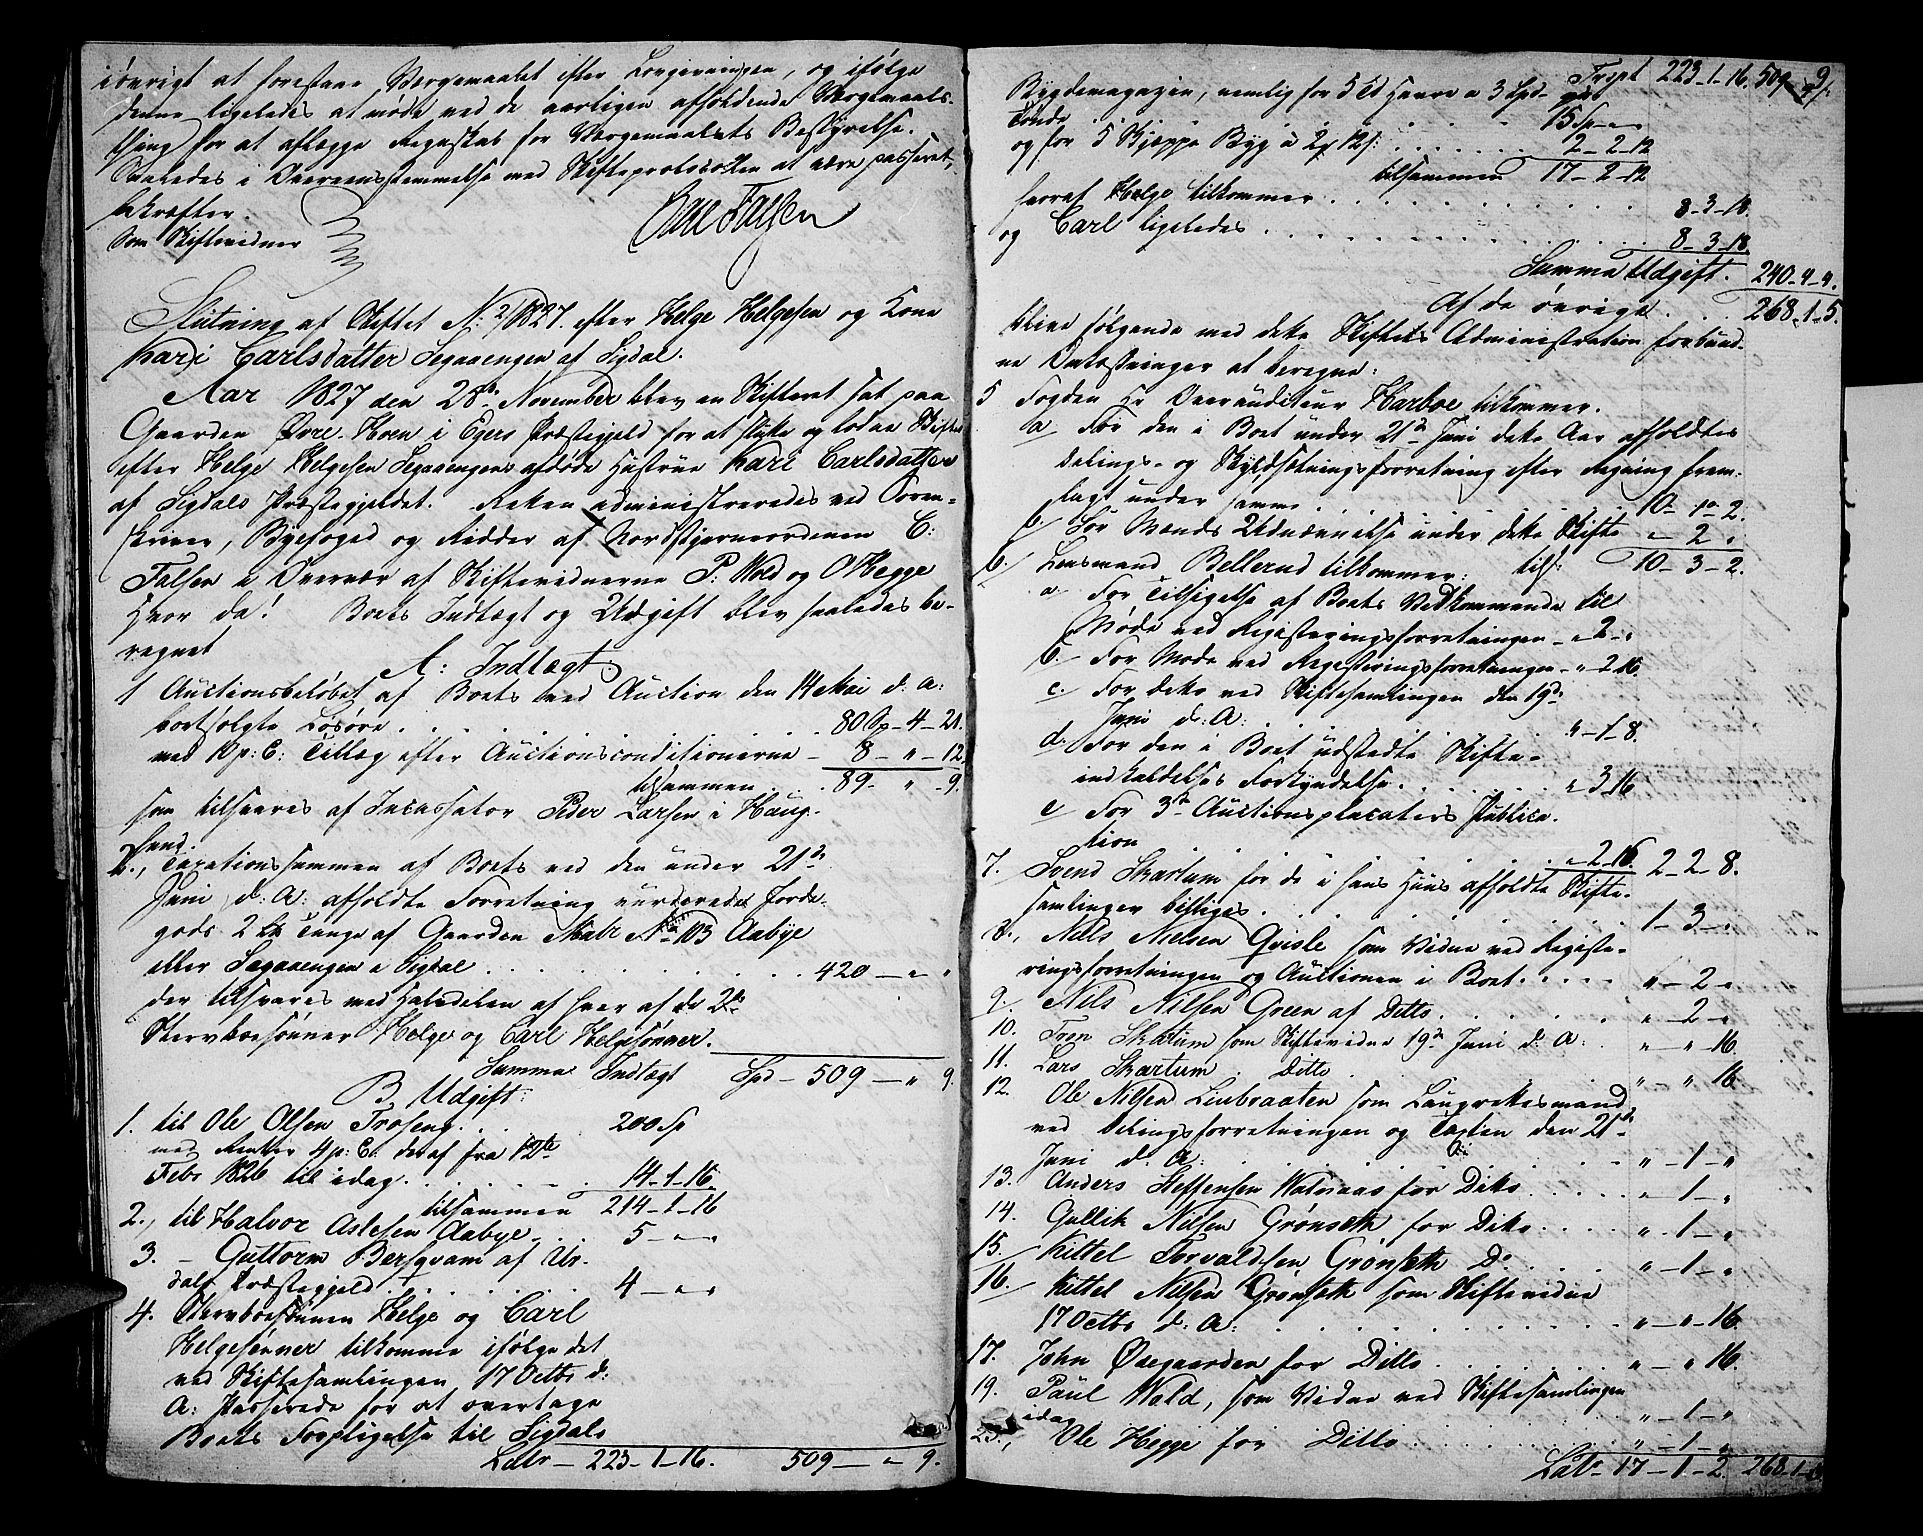 iøvrigt at forestaae Værgemaalet efter Lovgivningen, og ifølge
denne ligeledes at møde ved de aarligen afholdende Værgemaals-
thing for at aflægge Regnskab for Værgemaalets Bestyrelse.
Saaledes i Overeensstemmelse med Skifteprotocollen at være passeret,
bekræfter.
Som Skiftevidner
Falsen
Slutning af Skiftet No 2/1827. efter Helge Helgesen og Kone
Kari Carlsdatter Segaaengen af Sigdal.
Aar 1827 den 28de November blev en Skifteret sat paa
Gaarden Øvre-Hoen i Egers Præstegjeld for at slutte og lodne Skiftet
efter Helge Helgesen Segaaengens afdøde Hustrue Kari Carlsdatter
af Sigdals Præstegjeldet. Retten administreredes ved Soren-
skriver, Byefoged og Ridder af Nordstjerneordenen C:
Falsen i Overvær af Skiftevidnerne P: Wold og O Hegge
Hvor da! Boets Indtægt og Udgift blev saaledes be-
regnet
A: Indtægt
1 Auctionsbeløbet af Boets ved Auction den 14 Mai d: A:
bortsolgte Løsøre . . . 80 Sp - 4 - 21.
med 10 p: C: Tillæg efter Auctionsconditionerne - 8 - " - 12.
tilsammen . . 89 - " - 9.
som tilsvares af Incassator Peder Larsen i Haug-
sund.
2., Taxationssummen af Boets ved den under 21de
Juni d: A: afholdte Forretning vurderede Jorde-
gods 2 Tunge af Gaarden Matr No 103 Aabye
eller Segaaengen i Sigdal . . . 420 - " "
der tilsvares med Halvdelen af hver af de 2de
Stervboesønner Helge og Carl Helgesønner.
Summa Indtægt Spd - 509 - " 9.
B. Udgift:
1. til Ole Olsen Troseng . . 200 Sp
med Renter 4 p: C. deraf fra 12te
Febr 1826 til idag . . . 14 - 1 - 16.
tilsammen 214 - 1 - 16
2., til Halvor Aslesen Aabye . . 5 - " "
3. - Guttorm Bergqvam af Uv-
dals Præstegjeld . . . 4 - " "
4. Stervboesønnen Helge og Carl
Helgesønner tilkommer ifølge det
ved Skiftesamlingen 17 Octbr d:
A: Passerede for at overtage
Boets Forpligtelse til Sigdals
Latr - 223 - 1 - 16. 509 - " 9.
Trspt 223 - 1 - 16. 509 - " 9.
Bygdemagazin, nemlig for 5 Td Havre a 3 Spd- pr
Tønde . . . 15 Sp - "
og for 5 Skjæppe Byg a 2 12 s: . . . 2 - 2 - 12
tilsammen 17 - 2 - 12
hvoraf Helge tilkommer . . . 8 - 3 - 18.
og Carl ligeledes . . . 8 - 3 - 18.
Summa Udgift. 240 - 4 - 4.
Af de øvrige . . 268 - 1 - 5.
blive følgende med dette Skiftets Administration forbund-
ne Omkostninger at beregne:
5 Fogden Hr Overauditeur Harboe tilkommer.
a/ For den i Boet under 21de Juni dette Aar afholdte
Delings- og Skyldsætningsforretning efter Regning frem-
lagt under samme . . . 10 - 1 - 2.
b. For Mænds Udnævnelse under dette Skifte " 2 "
tils: 10 - 3 - 2.
6. Lensmand Bellerud tilkommer:
a For Tilsigelse af Boets Vedkommende til
Møde ved Registeringsforretningen - " 2 - "
b. For Møde ved Registeringsforretningen - " 2 16.
c. For dito ved Skiftesamlingen den 19de
Juni d: A: . . . " - 1 - 8.
d. For den i Boet udstedte Skifte-
indkaldelses Forkyndelse . . . " 3 16
e For 3de Auctionsplacaters Publica-
tion . . . " 2 16. 2 - 2 - 8.
7. Svend Skartum for de i hans Huus afholdte Skifte-
samlinger billiges . . . 1 - 3 - "
8., Nils Nielsen Qvisle som Vidne ved Registe-
ringsforretningen og Auctionen i Boet . . . " - 2 - "
9. Nils Nilsen Green af Ditto . . . " - 2 - "
10. Tron Skartum som Skiftevidne 19de Juni d: A: . . " - " 16.
11. Lars Skartum . Ditto . . " - " 16.
12. Ole Nilsen Linbraaten som Laugrettesmand
ved Delingsforretningen og Taxten den 21de
Juni d. A: . . . " - 1 - "
13. Anders Steffensen Watnaas for Dito . . . " - 1 - "
14. Gullik Nilsen Grønseth for Dito . . . " - 1 - "
15. Kittel Torvaldsen Grønseth Do . . . " - 1 - "
16. Kittel Nilsen Grønseth som Skiftevidne
17 Octbr d: A: . . . " - " - 16.
17. John Øvegaarden for Ditto . . . " - " 16.
19. Paul Wold, som Vidne ved Skiftesamlingen
idag . . . " - 1 - "
Ole Hegge for Ditto . . . " - 1 - "
Latr 17 - 1 - 2. 268 - 1 -